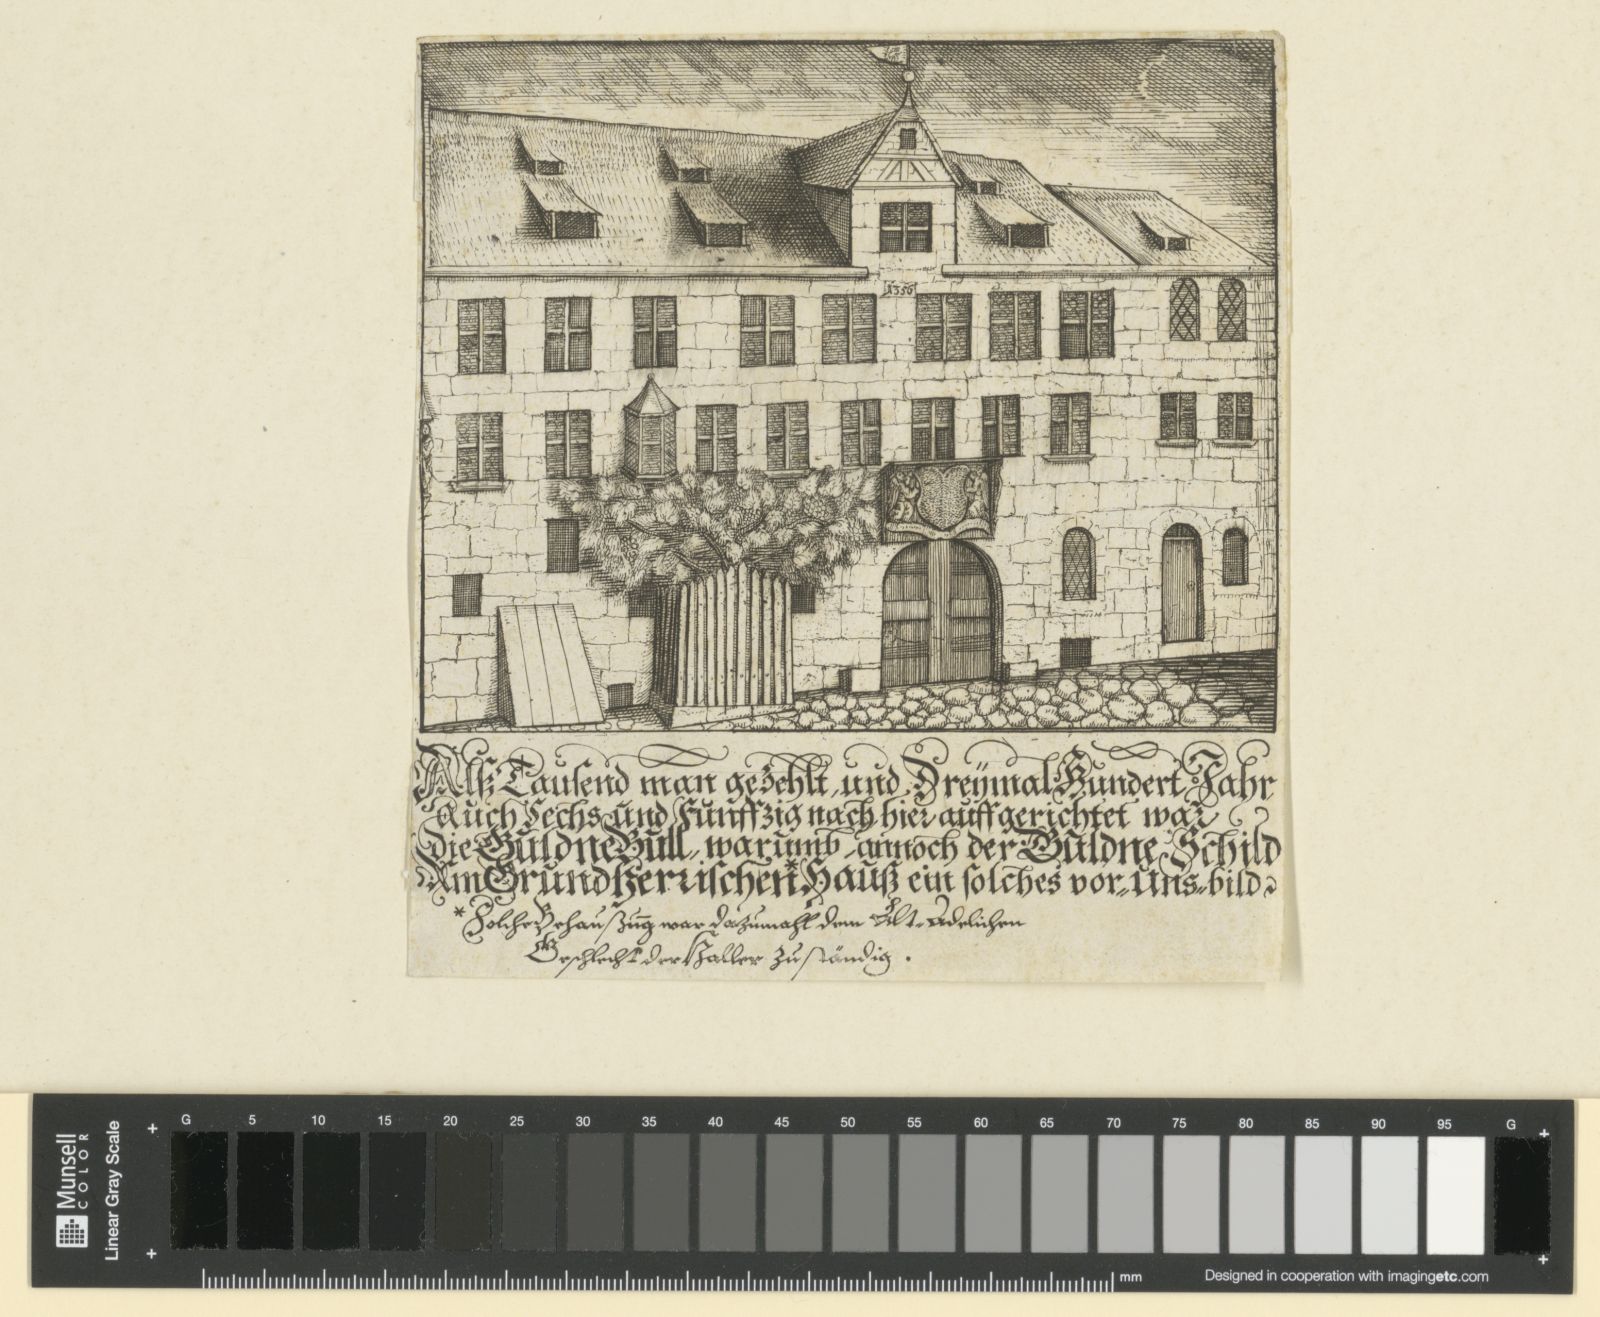 1356
Alß Tausend man gezehlt, und Dreÿmal Hundert Jahr
Auch Sechs und Fünffzig nach hier auffgerichtet war
Die Güldne Bull, warumb annoch der Güldne Schild
Am Grundherrischen* Hauß ein solches vor-Uns-bild
* Solche Behaußung war dazumahl dem Alt-Adelichen
Geschlecht der Haller zuständig.
Munsell
COLOR
Linear Gray Scale
G 5 10 15 20 25 30 35 40 45 50 55 60 65 70 75 80 85 90 95 G
mm
Designed in cooperation with imagingetc.com